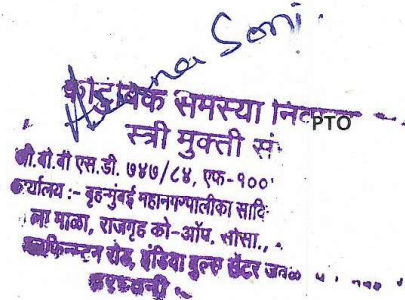 Soni.
कौटुंबिक समस्या
PTO
स्त्री मुक्ती सं
जी.बी.बी एस.डी. ७४७/८४, एफ-१००
कार्यालय :- बृहन्मुंबई महानगरपालीका
ला माळा, राजगृह को-ऑप. सोसा.,
रोड, इंडिया बुल्स सेंटर जवळ